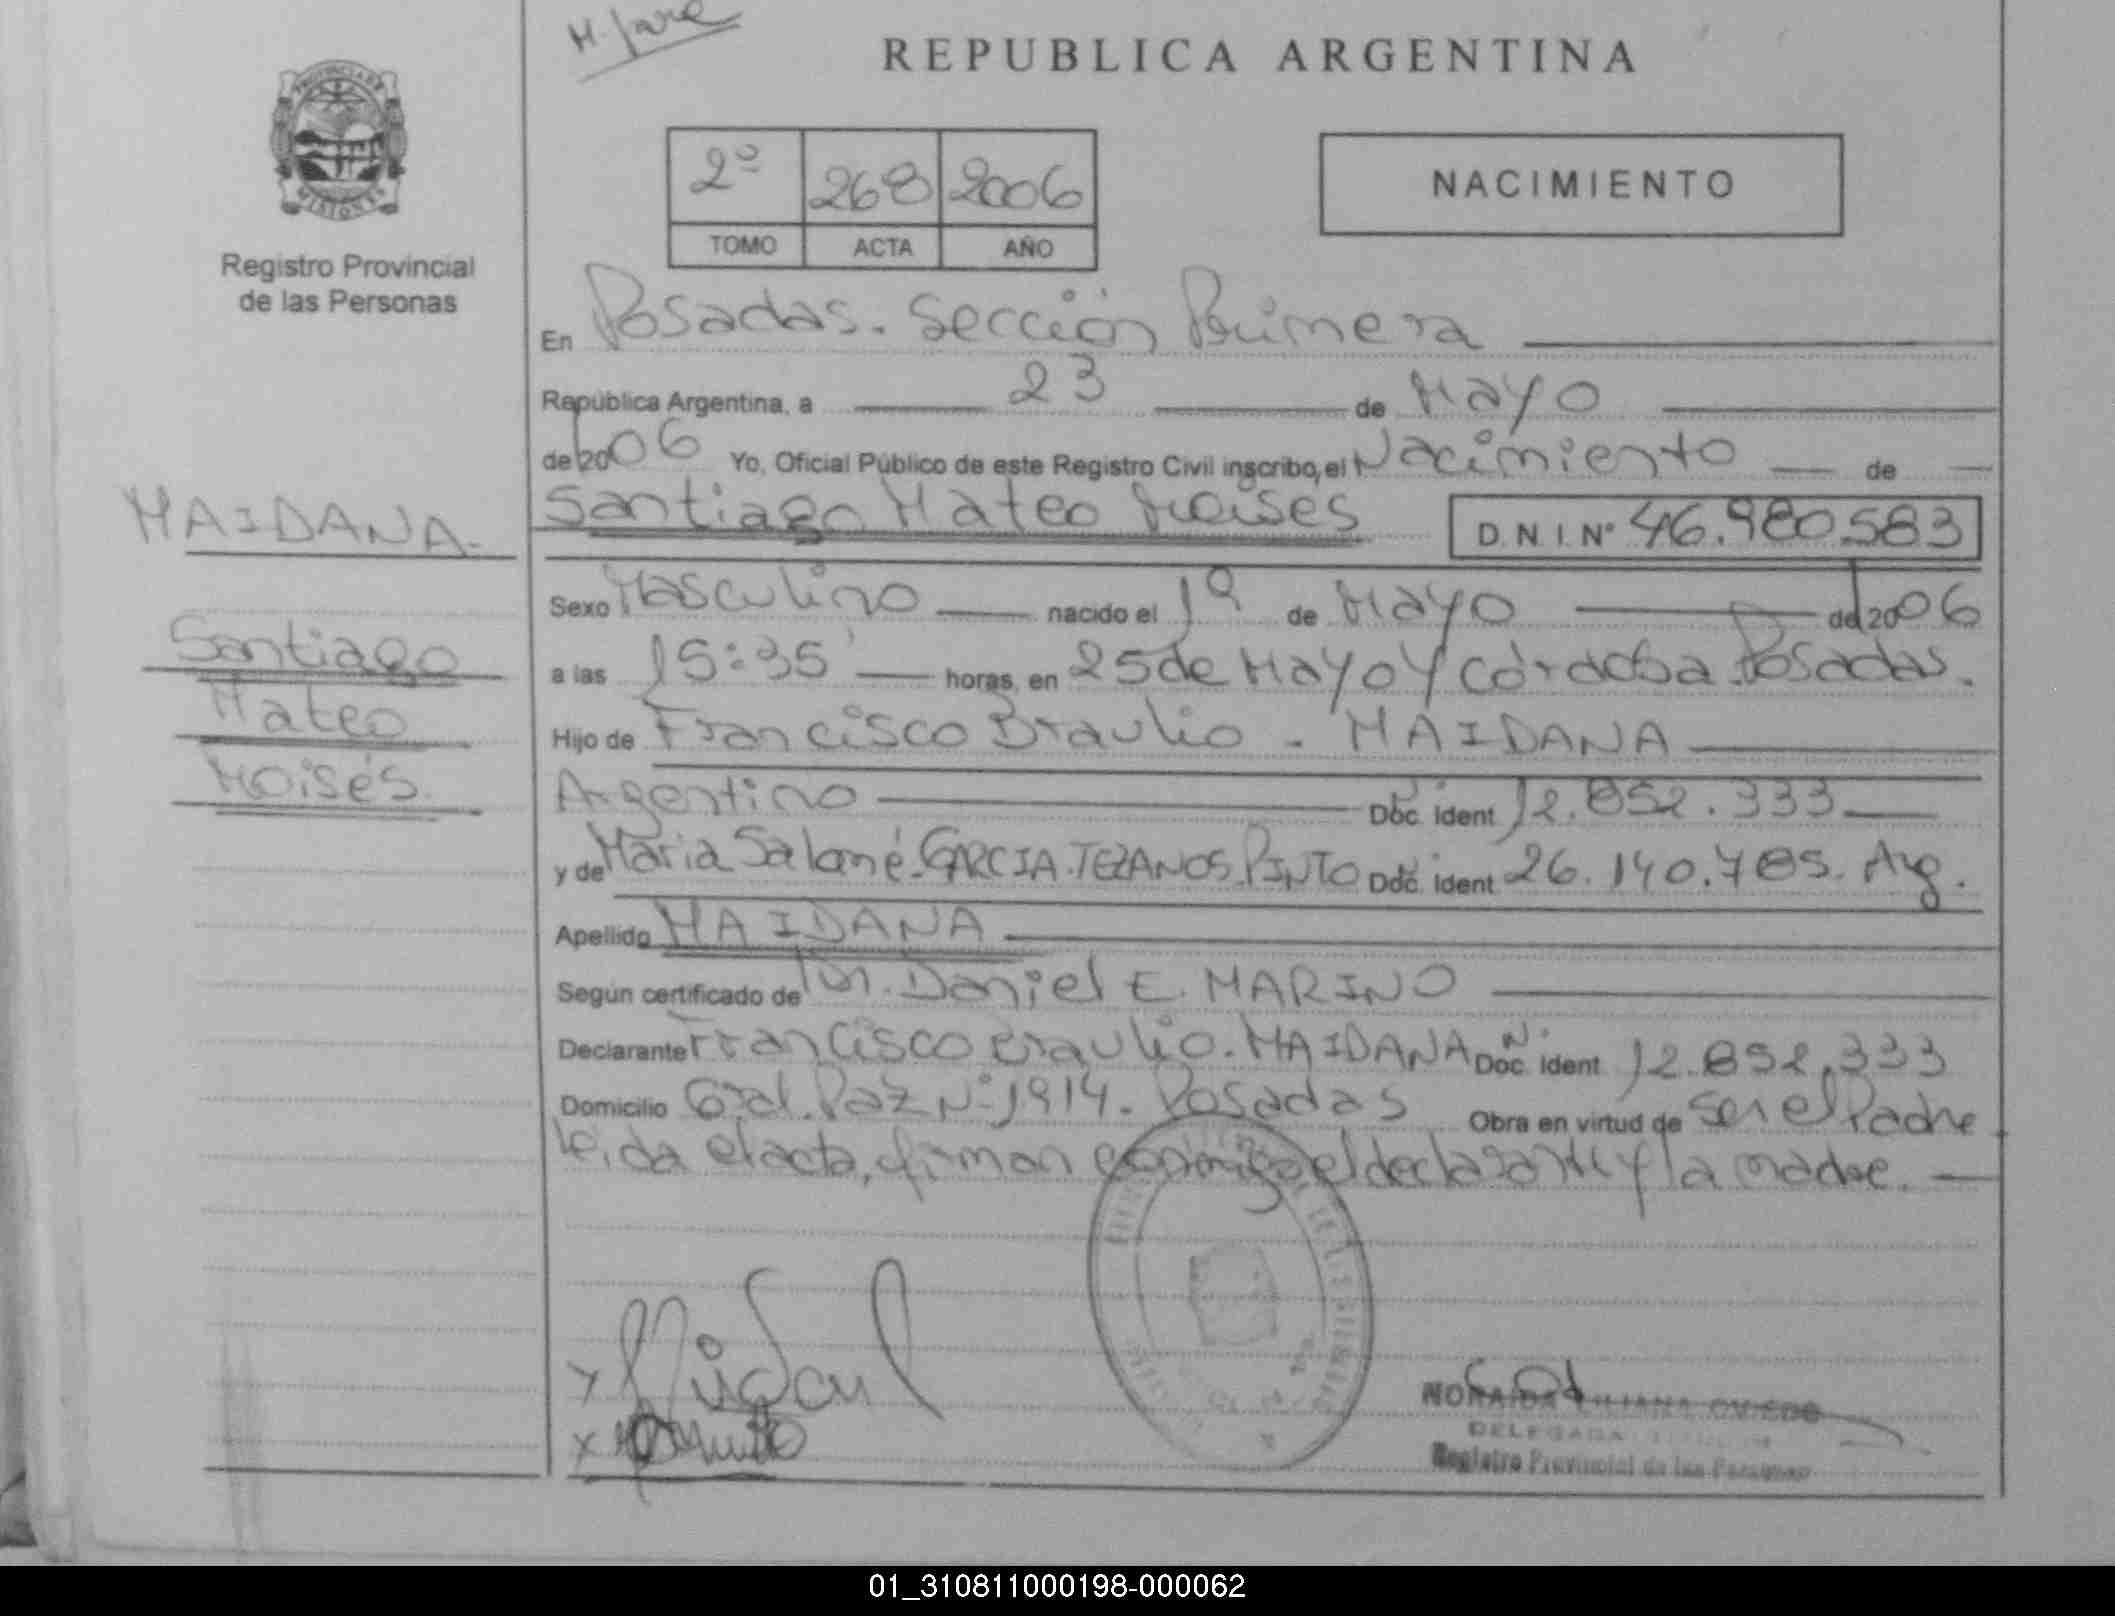 H. Jara
REPUBLICA ARGENTINA
PROVINCIA DE
MISIONES
Registro Provincial
de las Personas
2º 268 2006
TOMO ACTA AÑO
NACIMIENTO
En Posadas. Sección Primera
República Argentina, a 23 de Mayo
de 2006 Yo, Oficial Público de este Registro Civil inscribo, el Nacimiento de
Santiago Mateo Moises D.N.I. Nº 46.980.583
MAIDANA.
Santiago
Mateo
Moisés.
Sexo Masculino nacido el 1º de Mayo de 2006
a las 15:35 horas, en 25 de Mayo y Córdoba. Posadas.
Hijo de Francisco Braulio - MAIDANA
Argentino Doc. ident 12.852.333
y de Maria Salomé. GARCIA. TEZANOS. PINTO Doc. ident 26.140.785. Arg.
Apellido MAIDANA
Según certificado de Dr. Daniel E. MARINO
Declarante Francisco Braulio. MAIDANA Nº Doc. ident 12.852.333
Domicilio Gral. Paz Nº 1914. Posadas Obra en virtud de Ser el Padre
Leida el acta, firman conmigo el declarante y la madre.
NORAIDA LILIANA OVIEDO
DELEGADA
Registro Provincial de las Personas
01_310811000198-000062